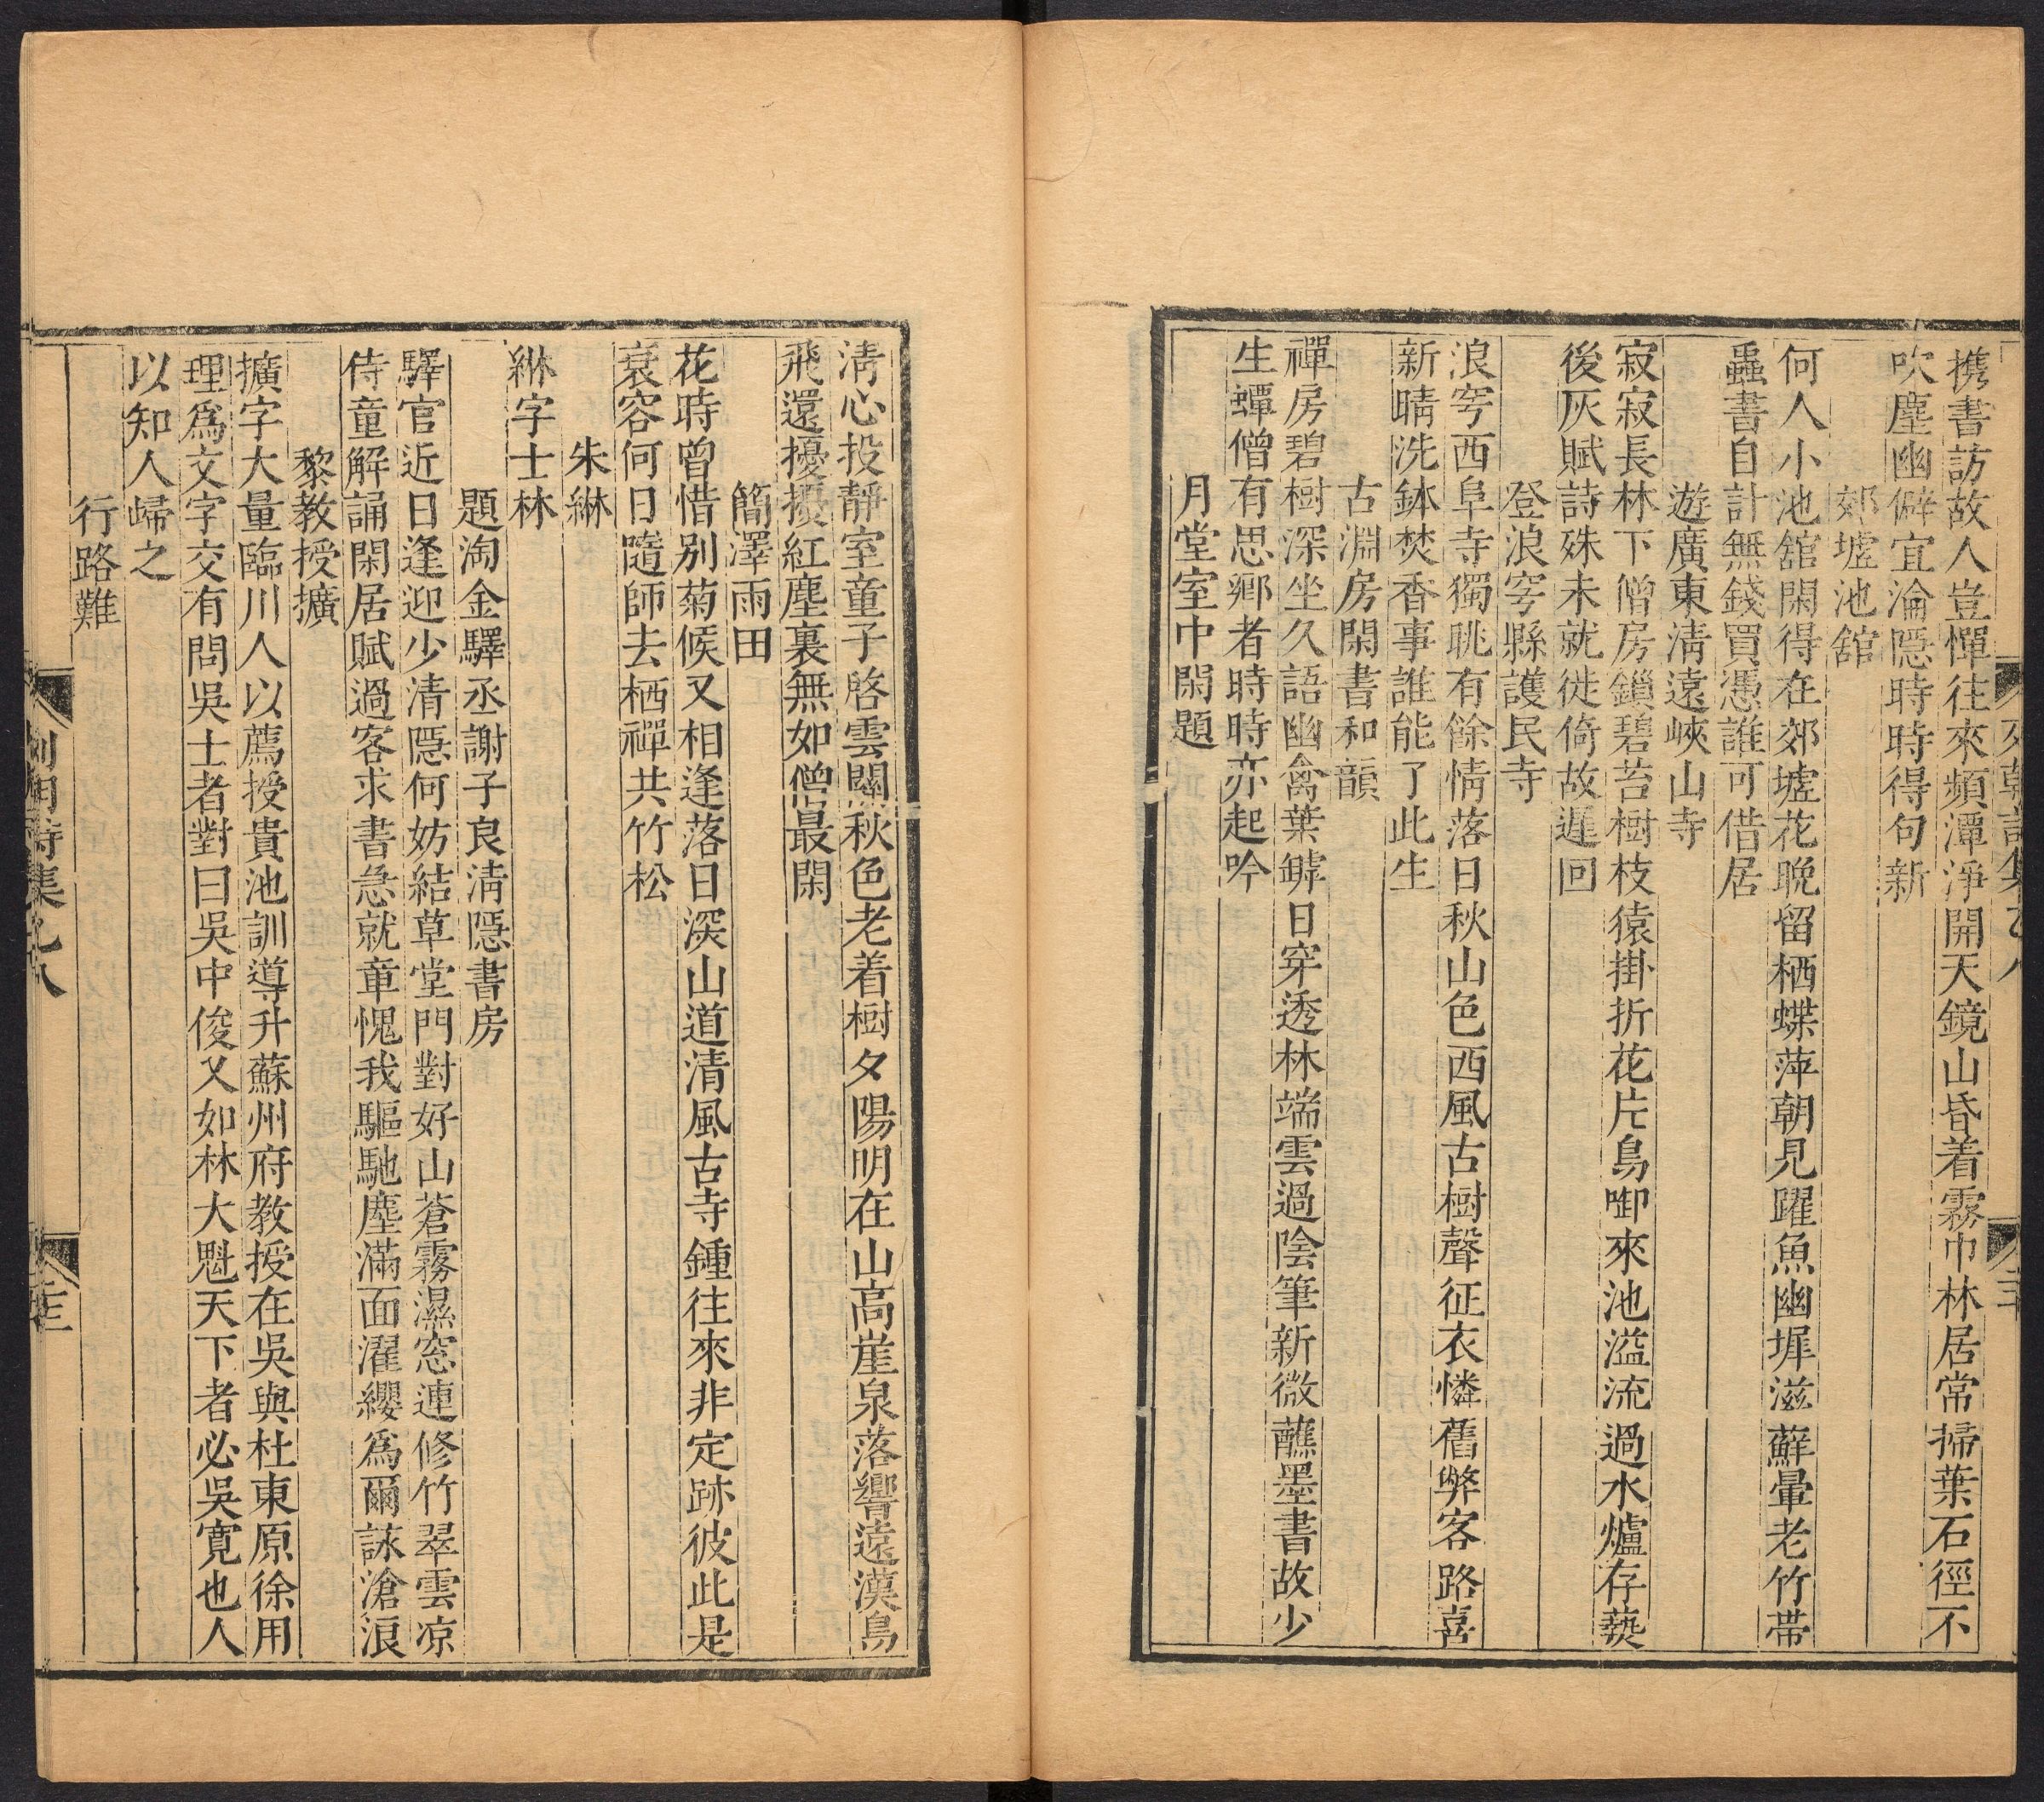 携書訪故人豈憚往來頻潭淨開天鏡山昏着霧巾林居常掃葉石徑不
吹塵幽僻宜淪隱時時得句新
郊墟池舘
何人小池舘閑得在郊墟花晚留栖蝶萍朝見躍魚幽墀滋蘚暈老竹帶
蟲書自計無錢買憑誰可借居
遊廣東清遠峽山寺
寂寂長林下僧房鎖碧苔樹枝猿掛折花片鳥啣來池溢流過水爐存爇
後灰賦詩殊未就徙倚故遲回
登浪穹縣護民寺
浪穹西阜寺獨眺有餘情落日秋山色西風古樹聲征衣憐舊弊客路喜
新晴洗鉢焚香事誰能了此生
古淵房閑書和韻
禪房碧樹深坐久語幽禽葉罅日穿透林端雲過陰筆新微蘸墨書故少
生蟫僧有思鄉者時時亦起吟
月堂室中閑題
清心投靜室童子啓雲關秋色老着樹夕陽明在山高崖泉落響遠漢鳥
飛還擾擾紅塵裏無如僧最閑
簡澤雨田
花時曾惜别菊候又相逢落日深山道清風古寺鍾往來非定跡彼此是
衰容何日隨師去栖禪共竹松
朱綝
綝字士林
題淘金驛丞謝子良清隱書房
驛官近日逢迎少清隱何妨結草堂門對好山蒼霧濕窓連修竹翠雲凉
侍童解誦閑居賦過客求書急就章愧我驅馳塵滿面濯纓爲爾詠滄浪
黎教授擴
擴字大量臨川人以薦授貴池訓導升蘇州府教授在吳與杜東原徐用
理爲文字交有問吳士者對曰吳中俊又如林大魁天下者必吳寬也人
以知人歸之
行路難
列朝詩集乙八